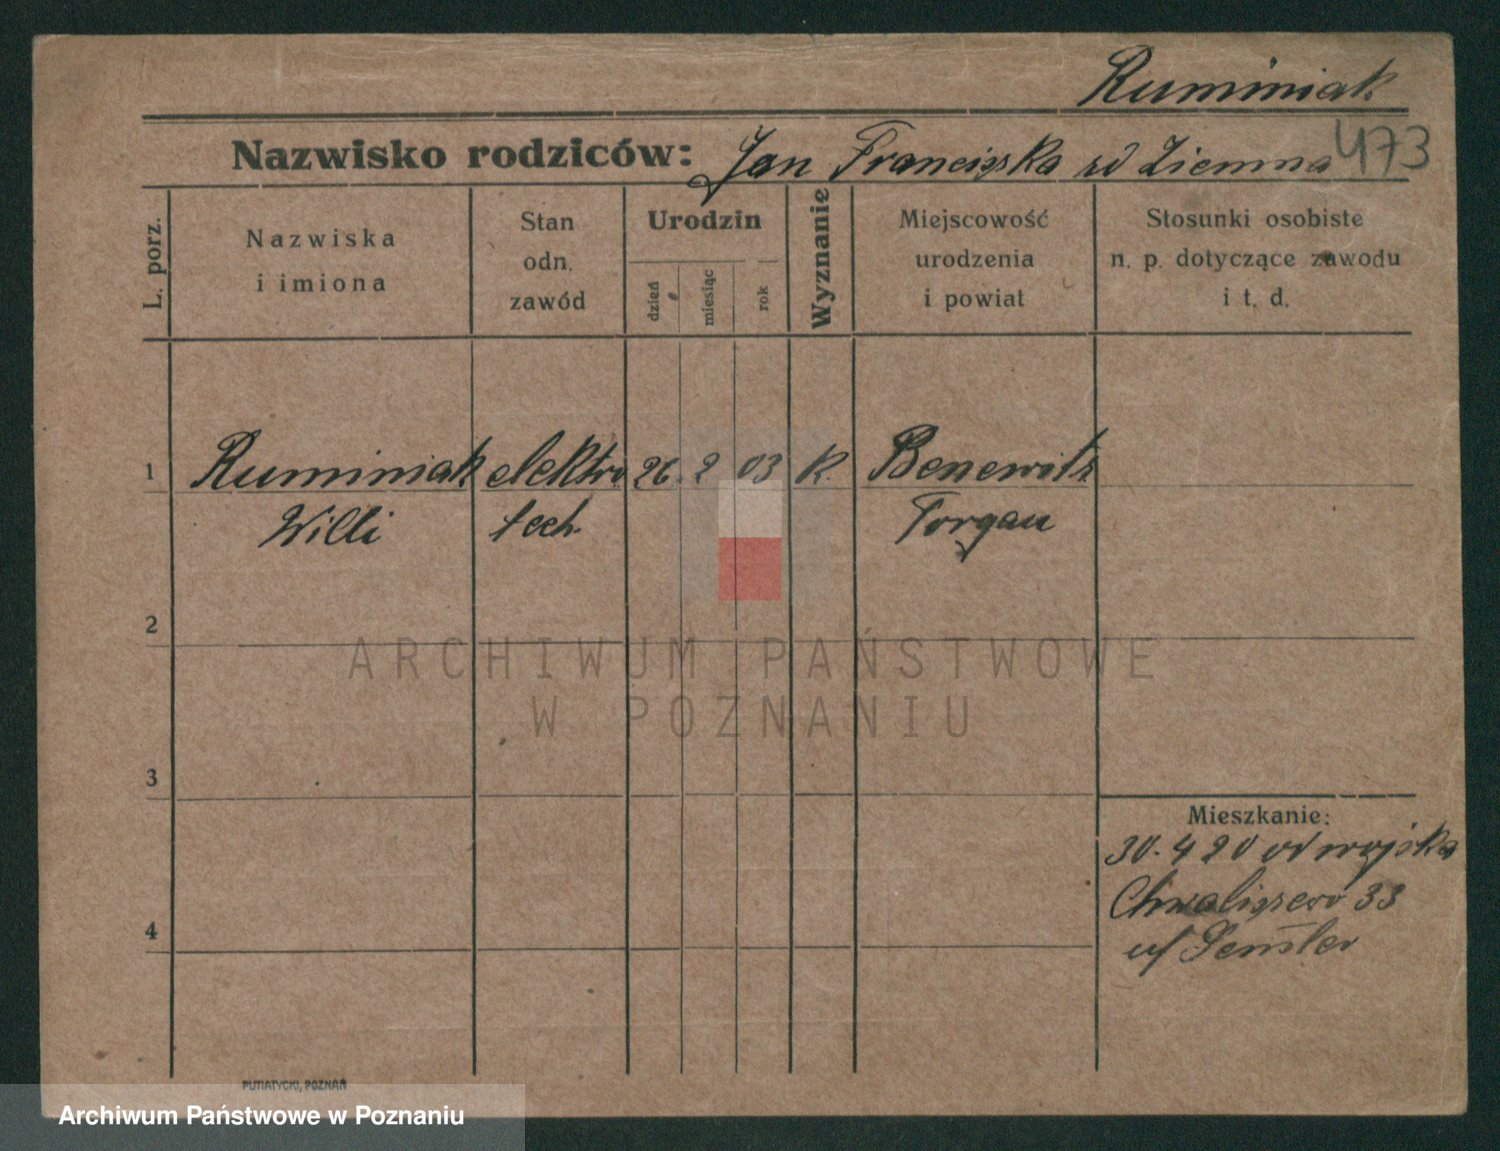 Ruminiak
Nazwisko rodziców: Jan Franciszka zd Ziemna 473
L. porz.
Nazwiska
i imiona
Stan
odn.
zawód
Urodzin
dzień
miesiąc
rok
Wyznanie
Miejscowość
urodzenia
i powiat
Stosunki osobiste
n. p. dotyczące zawodu
i t. d.
1 Ruminiak elektro 26. 2 03 K. Benewitz
Willi tech. Torgau
2
ARCHIWUM PAŃSTWOWE
W POZNANIU
3
Mieszkanie:
30. 4 20 od wojska
Chwaliszewo 33
4
PUTIATYCKI, POZNAŃ
Archiwum Państwowe w Poznaniu